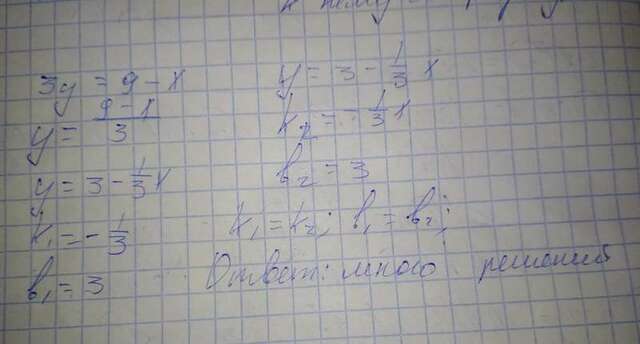 к
3y = 9 - x
y = \frac{9 - x}{3}
y = 3 - \frac{1}{3}x
k₁ = -\frac{1}{3}
b₁ = 3
y = 3 - \frac{1}{3}x
k₂ = -\frac{1}{3}x
b₂ = 3
k₁ = k₂; b₁ = b₂;
Ответ: много решений